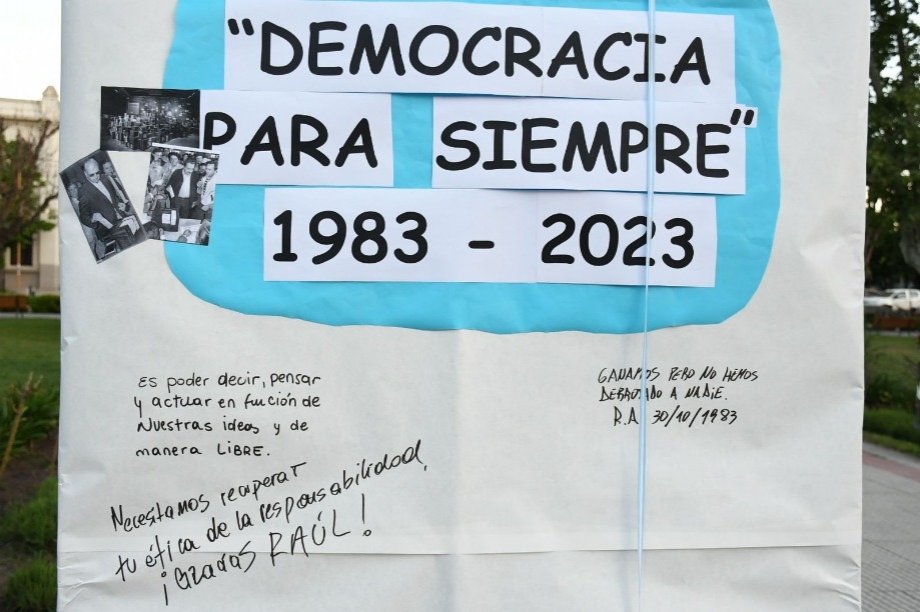 "DEMOCRACIA
PARA SIEMPRE"
1983 - 2023
ES poder decir, pensar
y actuar en función de
Nuestras ideas y de
manera LIBRE.
Necesitamos recuperar
tu ética de la responsabilidad,
¡Gracias RAÚL!
GANAMOS PERO NO HEMOS
DERROTADO A NADIE.
R.A 30/10/1983